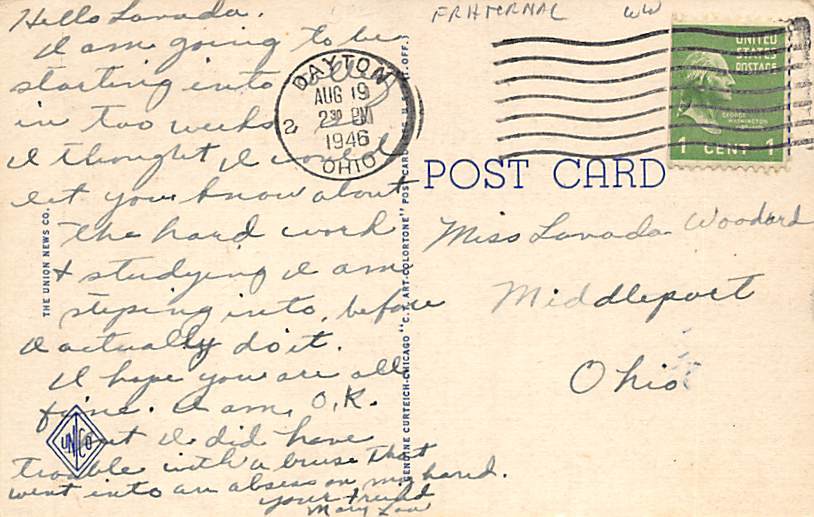 Hello Lavada.
I am going to be
starting into
in two weeks
I thought I would
let you know about
the hard work
& studying I am
steping into, before
I actually do it.
I hope you are all
fine. I am, O.K.
but I did have
trouble with a bruse that
went into an absess on my hand.
your friend
Mary Lou
FRATERNAL WW
DAYTON
AUG 19
2 30 PM
1946
OHIO
2
UNITED
STATES
POSTAGE
GEORGE
WASHINGTON
1 CENT 1
POST CARD
Miss Lavada Woodard
Middleport
Ohio
THE UNION NEWS CO.
UNCO
GENUINE CURTEICH-CHICAGO "C.T. ART-COLORTONE" POST CARD (REG. U.S. PAT. OFF.)